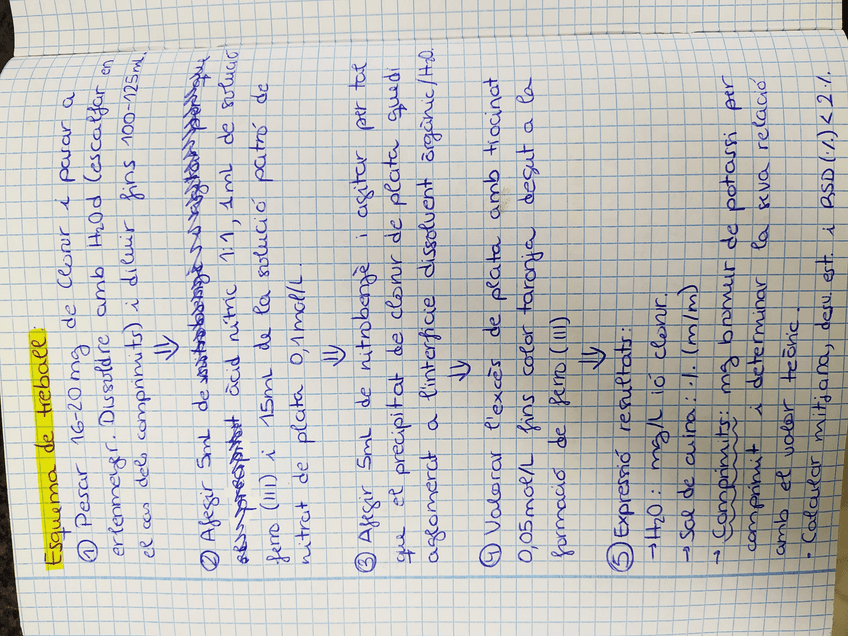 Esquema de treball:
① Pesar 16-20mg de clorur i passar a
erlenmeyer. Dissoldre amb H₂Od (escalfar en
el cas dels comprimits) i diluir fins 100-125mL.
⇓
② Afegir 5mL de
àcid nítric 1:1, 1mL de solució
ferro (III) i 15mL de la solució patró de
nitrat de plata 0,1mol/L.
⇓
③ Afegir 5mL de nitrobenzè i agitar per tal
que el precipitat de clorur de plata quedi
aglomerat a l'interfície dissolvent orgànic/H₂O.
⇓
④ Valorar l'excés de plata amb tiocinat
0,05mol/L fins color taronja degut a la
formació de ferro (III)
⇓
⑤ Expressió resultats:
→ H₂O: mg/L ió clorur
→ Sal de cuina: % (m/m)
→ Comprimits: mg bromur de potassi per
comprimit i determinar la seva relació
amb el valor teòric.
• Calcular mitjana, desv. est. i RSD (%) < 2%.